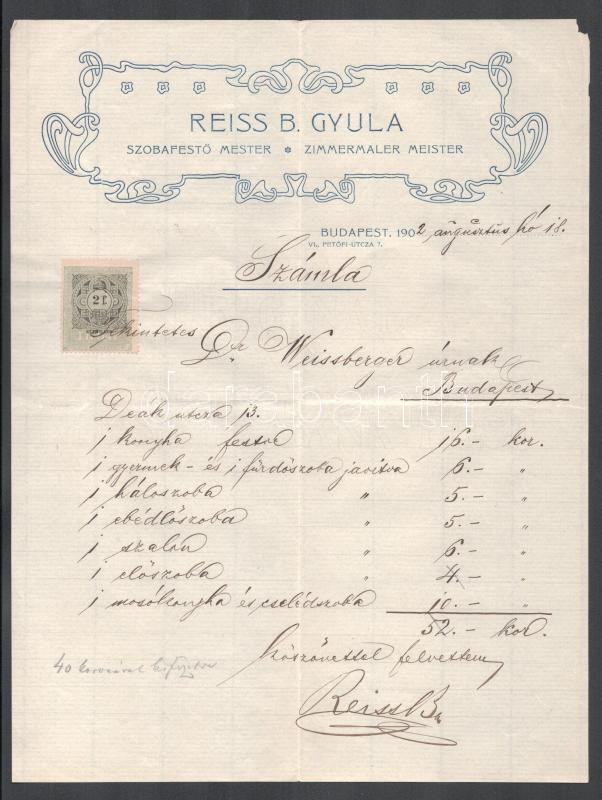 REISS B. GYULA
SZOBAFESTŐ MESTER * ZIMMERMALER MEISTER
BUDAPEST, 1902 augusztus hó 18.
VI., PETŐFI-UTCZA 7.
Számla
2 f.
Tekintetes Dr Weissberger úrnak
Budapest
darabanth
Deak utcza 13.
1 konyha festve 16.- kor.
1 gyermek- és 1 fürdőszoba javitva 6.- "
1 hálószoba " 5.- "
1 ebédlőszoba " 5.- "
1 szalon " 6.- "
1 előszoba " 4.- "
1 mosókonyha és cselédszoba 10.- "
52.- kor.
40 koronával kifizetve
Köszönettel felvettem
Reiss B.